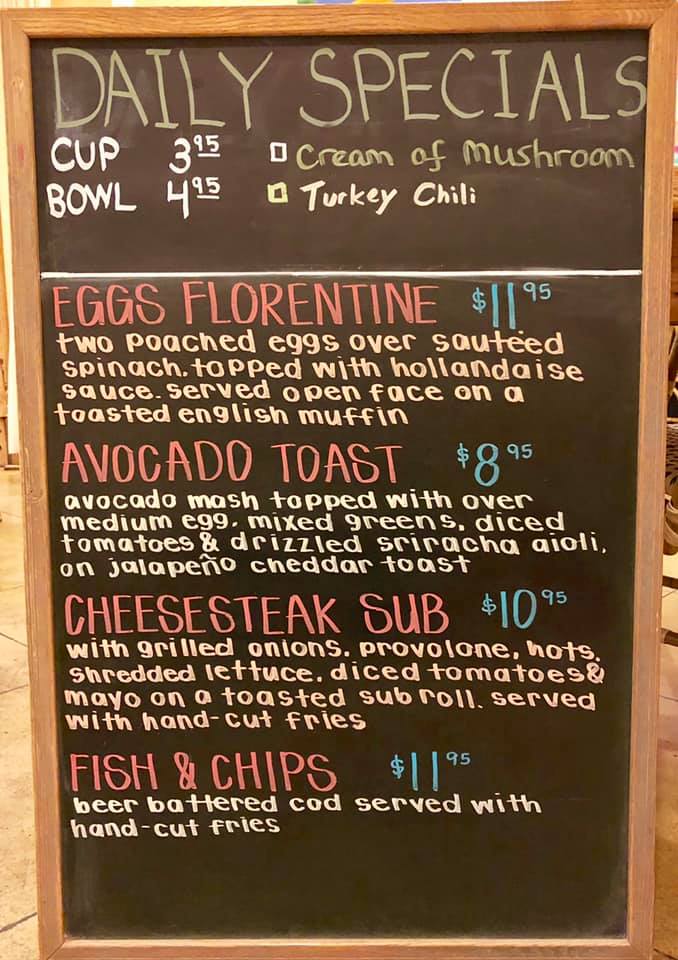 DAILY SPECIALS
CUP 3.95 Cream of Mushroom
BOWL 4.95 Turkey Chili
EGGS FLORENTINE $11.95
two poached eggs over sautéed
spinach, topped with hollandaise
sauce. served open face on a
toasted english muffin
AVOCADO TOAST $8.95
avocado mash topped with over
medium egg, mixed greens, diced
tomatoes & drizzled sriracha aioli,
on jalapeño cheddar toast
CHEESESTEAK SUB $10.95
with grilled onions, provolone, hots,
shredded lettuce, diced tomatoes &
mayo on a toasted sub roll. served
with hand-cut fries
FISH & CHIPS $11.95
beer battered cod served with
hand-cut fries